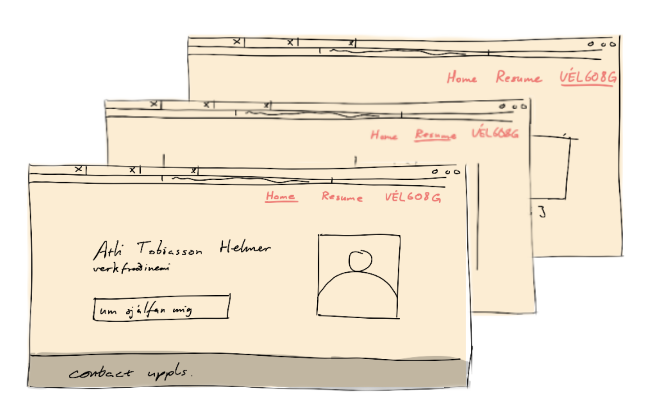 Home Resume VÉL608G
Home Resume VÉL608G
Home Resume VÉL608G
Atli Tobiasson Helmer
verkfræðinemi
um sjálfan mig
contact uppls.